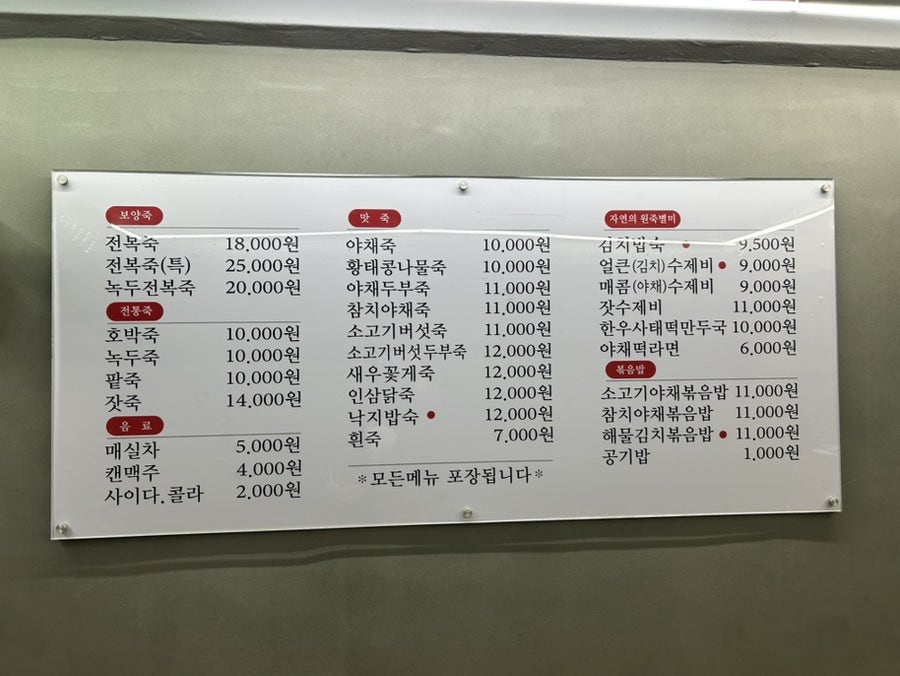 보양죽
전복죽 18,000원
전복죽(특) 25,000원
녹두전복죽 20,000원
전통죽
호박죽 10,000원
녹두죽 10,000원
팥죽 10,000원
잣죽 14,000원
음 료
매실차 5,000원
캔맥주 4,000원
사이다.콜라 2,000원
맛 죽
야채죽 10,000원
황태콩나물죽 10,000원
야채두부죽 11,000원
참치야채죽 11,000원
소고기버섯죽 11,000원
소고기버섯두부죽 12,000원
새우꽃게죽 12,000원
인삼닭죽 12,000원
낙지밥숙 12,000원
흰죽 7,000원
*모든메뉴 포장됩니다*
자연의 원죽별미
김치밥숙 9,500원
얼큰(김치)수제비 9,000원
매콤(야채)수제비 9,000원
잣수제비 11,000원
한우사태떡만두국 10,000원
야채떡라면 6,000원
볶음밥
소고기야채볶음밥 11,000원
참치야채볶음밥 11,000원
해물김치볶음밥 11,000원
공기밥 1,000원